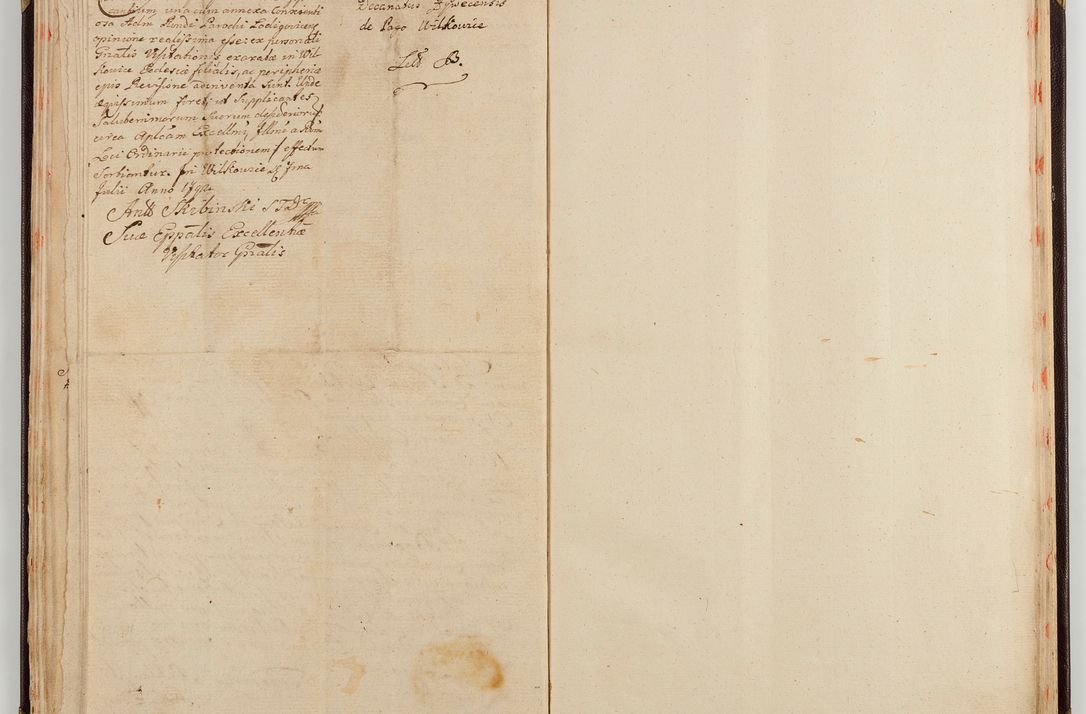 cantium, una cum annexa Consenti
osa Adm Rondi Parochi Lodigovicen
opinione realissima esse: ex personali
Gnalis Visitationis exarata in Wil
kowice Ecclesiæ filialis, ac peripheriæ
ejus Revisione adinventa sunt. Unde
æquissimum foret, ut Supplicantes
Saluberrimorum Suorum desideriorum
circa Aplcam Excellmi, Illmi a Rdmi
Loci Ordinarii protectionem effectum
Sortiantur. in Wilkowice d. 7ma
Julii Anno 179
Antt Skrbinski S T D
Suæ Eppalis Excellentiæ
Visitator Gnalis
Decanatus Zywecensis
de Pago Wilkowice
Litt B.